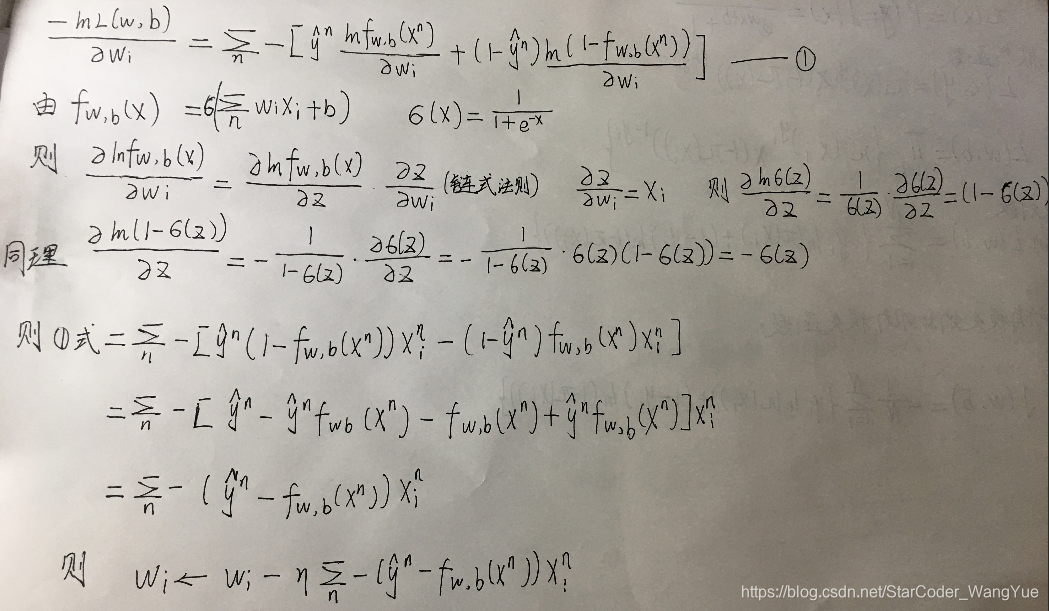 -lnL(w,b)/∂wᵢ = Σₙ -[ŷⁿ lnf_w,b(xⁿ)/∂wᵢ + (1-ŷⁿ) ln(1-f_w,b(xⁿ))/∂wᵢ] —— ①
由 f_w,b(x) = σ(Σₙ wᵢxᵢ+b) σ(x) = 1/(1+e^-x)
则 ∂lnf_w,b(x)/∂wᵢ = ∂lnf_w,b(x)/∂z · ∂z/∂wᵢ (链式法则) ∂z/∂wᵢ = xᵢ 则 ∂lnσ(z)/∂z = 1/σ(z) · ∂σ(z)/∂z = (1-σ(z))
同理 ∂ln(1-σ(z))/∂z = - 1/(1-σ(z)) · ∂σ(z)/∂z = - 1/(1-σ(z)) · σ(z)(1-σ(z)) = -σ(z)
则①式 = Σₙ -[ŷⁿ(1-f_w,b(xⁿ))xᵢⁿ - (1-ŷⁿ)f_w,b(xⁿ)xᵢⁿ]
= Σₙ -[ŷⁿ - ŷⁿf_wb(xⁿ) - f_w,b(xⁿ) + ŷⁿf_w,b(xⁿ)]xᵢⁿ
= Σₙ -(ŷⁿ - f_w,b(xⁿ))xᵢⁿ
则 wᵢ ← wᵢ - η Σₙ -(ŷⁿ - f_w,b(xⁿ))xᵢⁿ
https://blog.csdn.net/StarCoder_WangYue